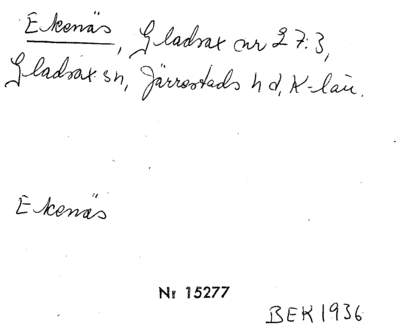 Ekenäs, Gladsax nr 27:3,
Gladsax sn, Järrestads hd, K-län.
Ekenäs
Nr 15277
BEK 1936